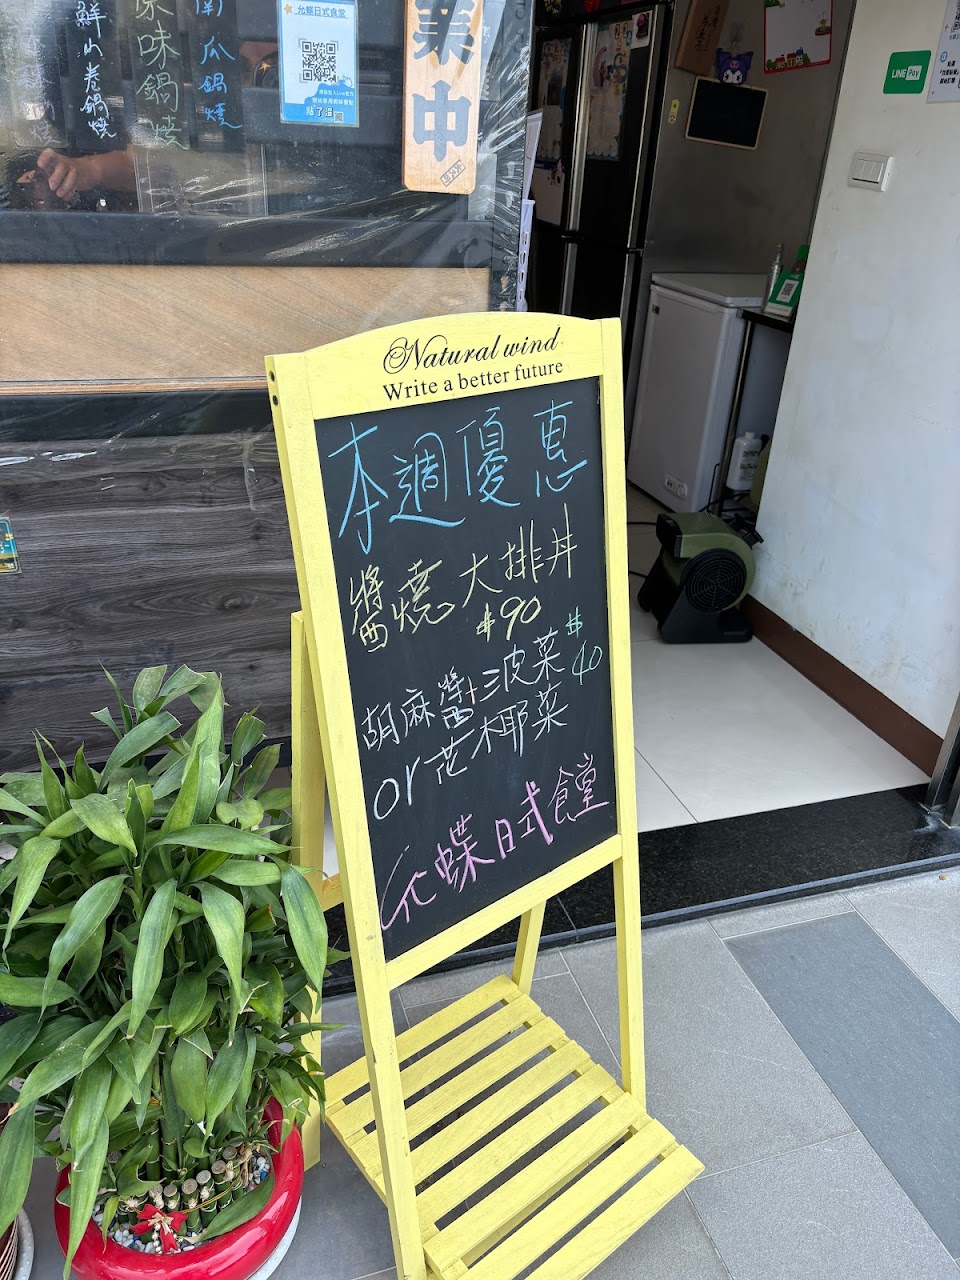 鮮山卷鍋燒
原味鍋燒
南瓜鍋燒
允蝶日式食堂
點了沒
業中
LINE Pay
Natural wind
Write a better future
本週優惠
醬燒大排丼
$90
胡麻醬+波菜 $40
or花椰菜
允蝶日式食堂